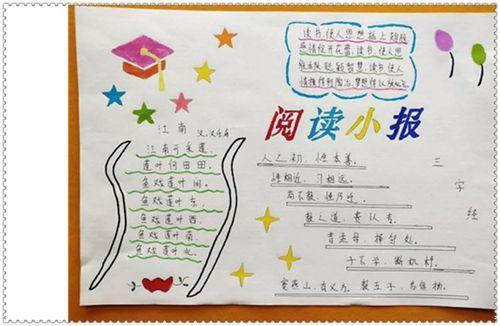 读书,使人思想插上翅膀
感情绽开花蕾,读书,使人思
维活跃,聪颖智慧,读书,使人
情操得到陶冶,梦想得以放飞。
阅读小报
江南 汉乐府
江南可采莲,
莲叶何田田,
鱼戏莲叶间。
鱼戏莲叶东,
鱼戏莲叶西,
鱼戏莲叶南,
鱼戏莲叶北。
三字经
人之初,性本善。
性相近,习相远。
苟不教,性乃迁。
教之道,贵以专。
昔孟母,择邻处。
子不学,断机杼。
窦燕山,有义方,教五子,名俱扬。